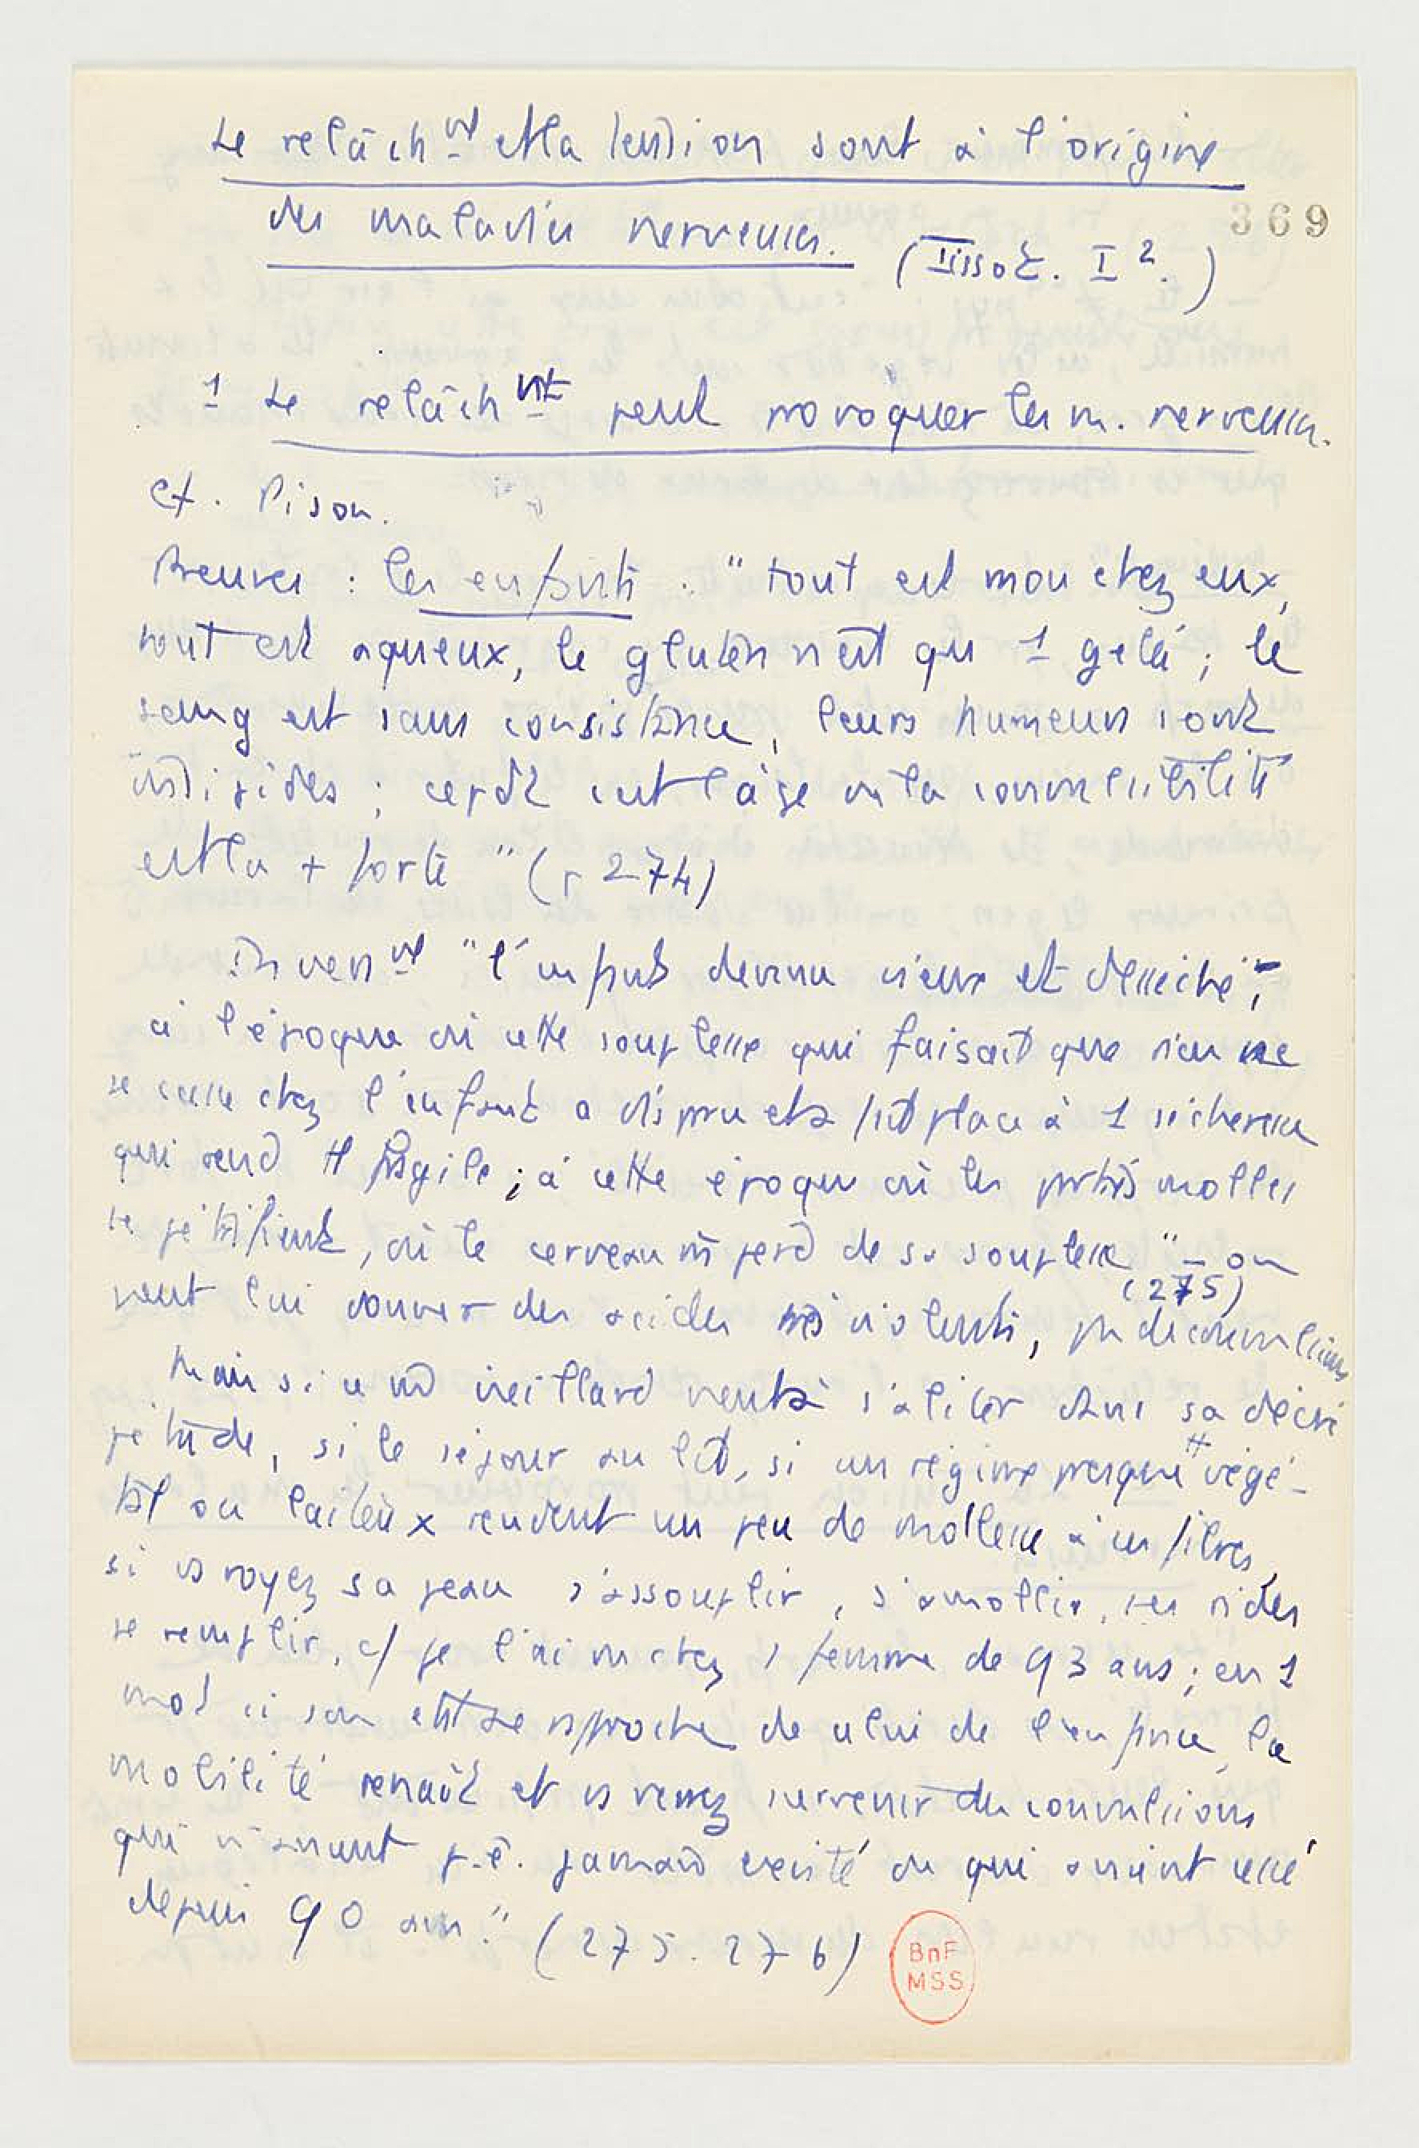 Le relâchmt et la tension sont à l'origine
des maladies nerveuses.
369
(Tissot. I 2.)
1 Le relâchmt peut provoquer les m. nerveuses.
cf. Pison.
Preuves : les enfants : "tout est mou chez eux,
tout est aqueux, le gluten n'est qu 1 gelée ; le
sang est sans consistance, leurs humeurs sont
insipides ; cepdt c'est l'âge où la convulsibilité
est la + forte" (p 274)
Inversmt "l'enfant devenu vieux et desséché",
à l'époque où cette souplesse qui faisait que rien ne
se casse chez l'enfant a disparu et a fait place à 1 sécheresse
qui rend tt fragile ; à cette époque où les parties molles
se pétrifient, où le cerveau m perd de sa souplesse" – on
(275)
peut lui donner des acides très violents, pas de convulsions
Mais si ce vieillard vient à s'aliter dans sa décré
pitude, si le séjour au lit, si un régime presque tt végé-
tal ou laiteux rendent un peu de mollesse à ces fibres,
si vs voyez sa peau s'assouplir, s'amollir, ses rides
se remplir, c/ je l'ai vu chez 1 femme de 93 ans ; en 1
mot si son état se rapproche de celui de l'enfance, la
mobilité renaît et vs verrez survenir des convulsions
qui n'avaient p.ê. jamais existé ou qui avaient cessé
depuis 90 ans." (275. 276)
BnF
MSS